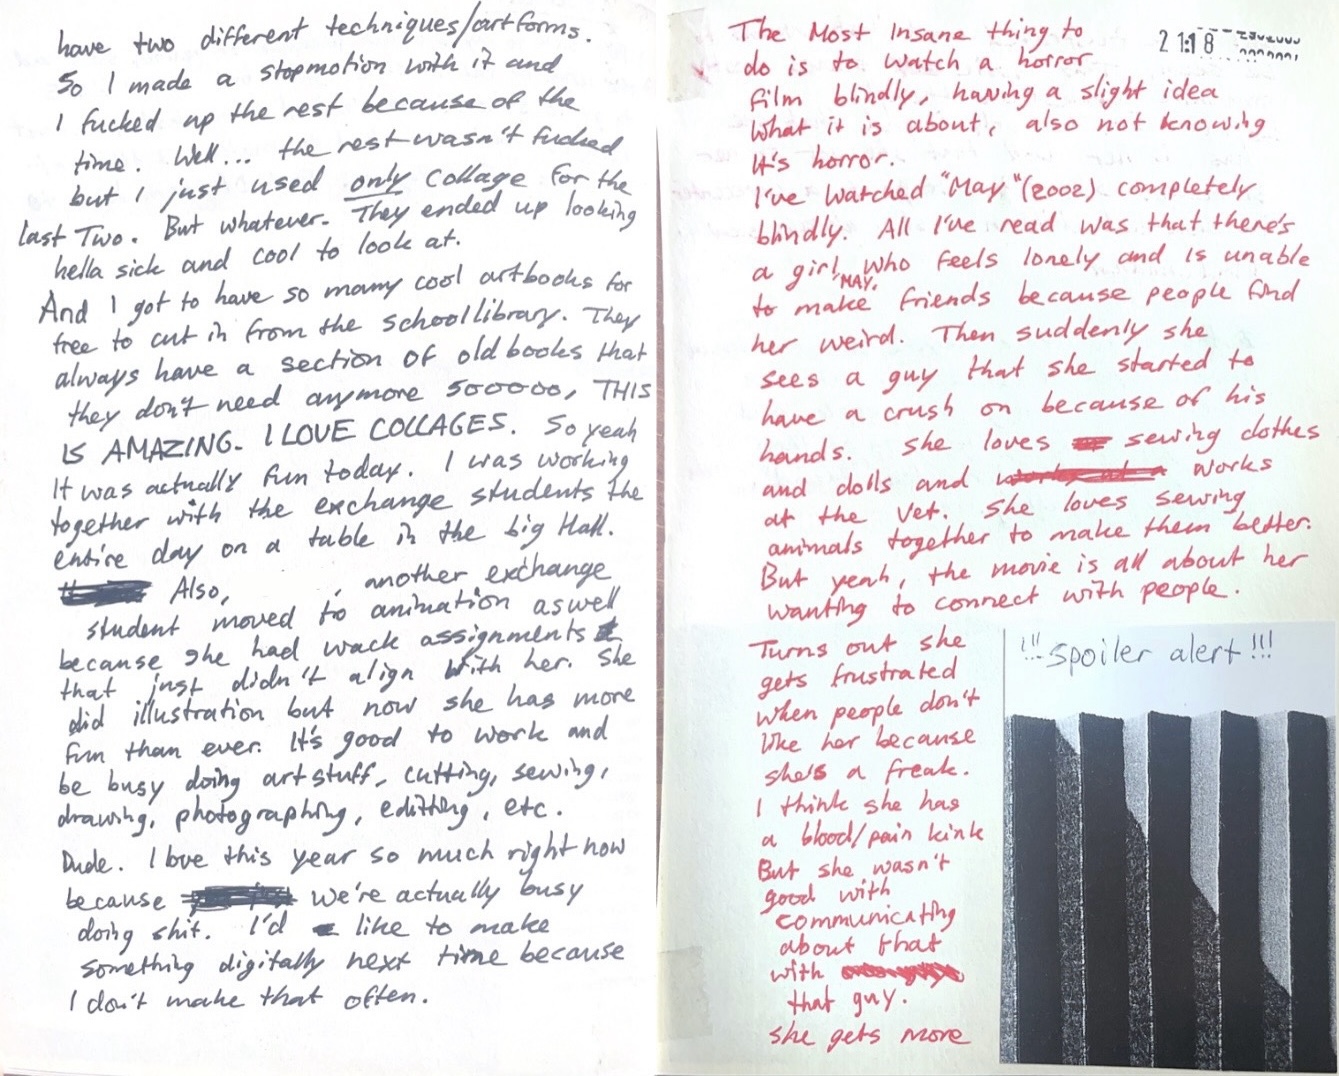 have two different techniques/artforms.
So I made a stopmotion with it and
I fucked up the rest because of the
time. Well... the rest wasn't fucked
but I just used only collage for the
last Two. But whatever. They ended up looking
hella sick and cool to look at.
And I got to have so many cool artbooks for
free to cut in from the school library. They
always have a section of old books that
they don't need anymore sooooo, THIS
IS AMAZING. I LOVE COLLAGES. So yeah
It was actually fun today. I was working
together with the exchange students the
entire day on a table in the big Hall.
Also, another exchange
student moved to animation aswell
because she had wack assignments
that just didn't align with her. She
did illustration but now she has more
fun than ever. It's good to work and
be busy doing art stuff, cutting, sewing,
drawing, photographing, editting, etc.
Dude. I love this year so much right now
because we're actually busy
doing shit. I'd like to make
something digitally next time because
I don't make that often.
21:18
The Most Insane thing to
do is to watch a horror
film blindly, having a slight idea
what it is about, also not knowing
It's horror.
I've watched "May" (2002) completely
blindly. All I've read was that there's
a girl, MAY, who feels lonely and is unable
to make friends because people find
her weird. Then suddenly she
sees a guy that she started to
have a crush on because of his
hands. She loves sewing clothes
and dolls and works
at the vet. She loves sewing
animals together to make them better.
But yeah, the movie is all about her
wanting to connect with people.
!!! spoiler alert !!!
Turns out she
gets frustrated
when people don't
like her because
she's a freak.
I think she has
a blood/pain kink
But she wasn't
good with
communicating
about that
with
that guy.
She gets more